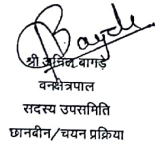 श्री अनिल बागड़े
वनक्षेत्रपाल
सदस्य उपसमिति
छानबीन/चयन प्रक्रिया